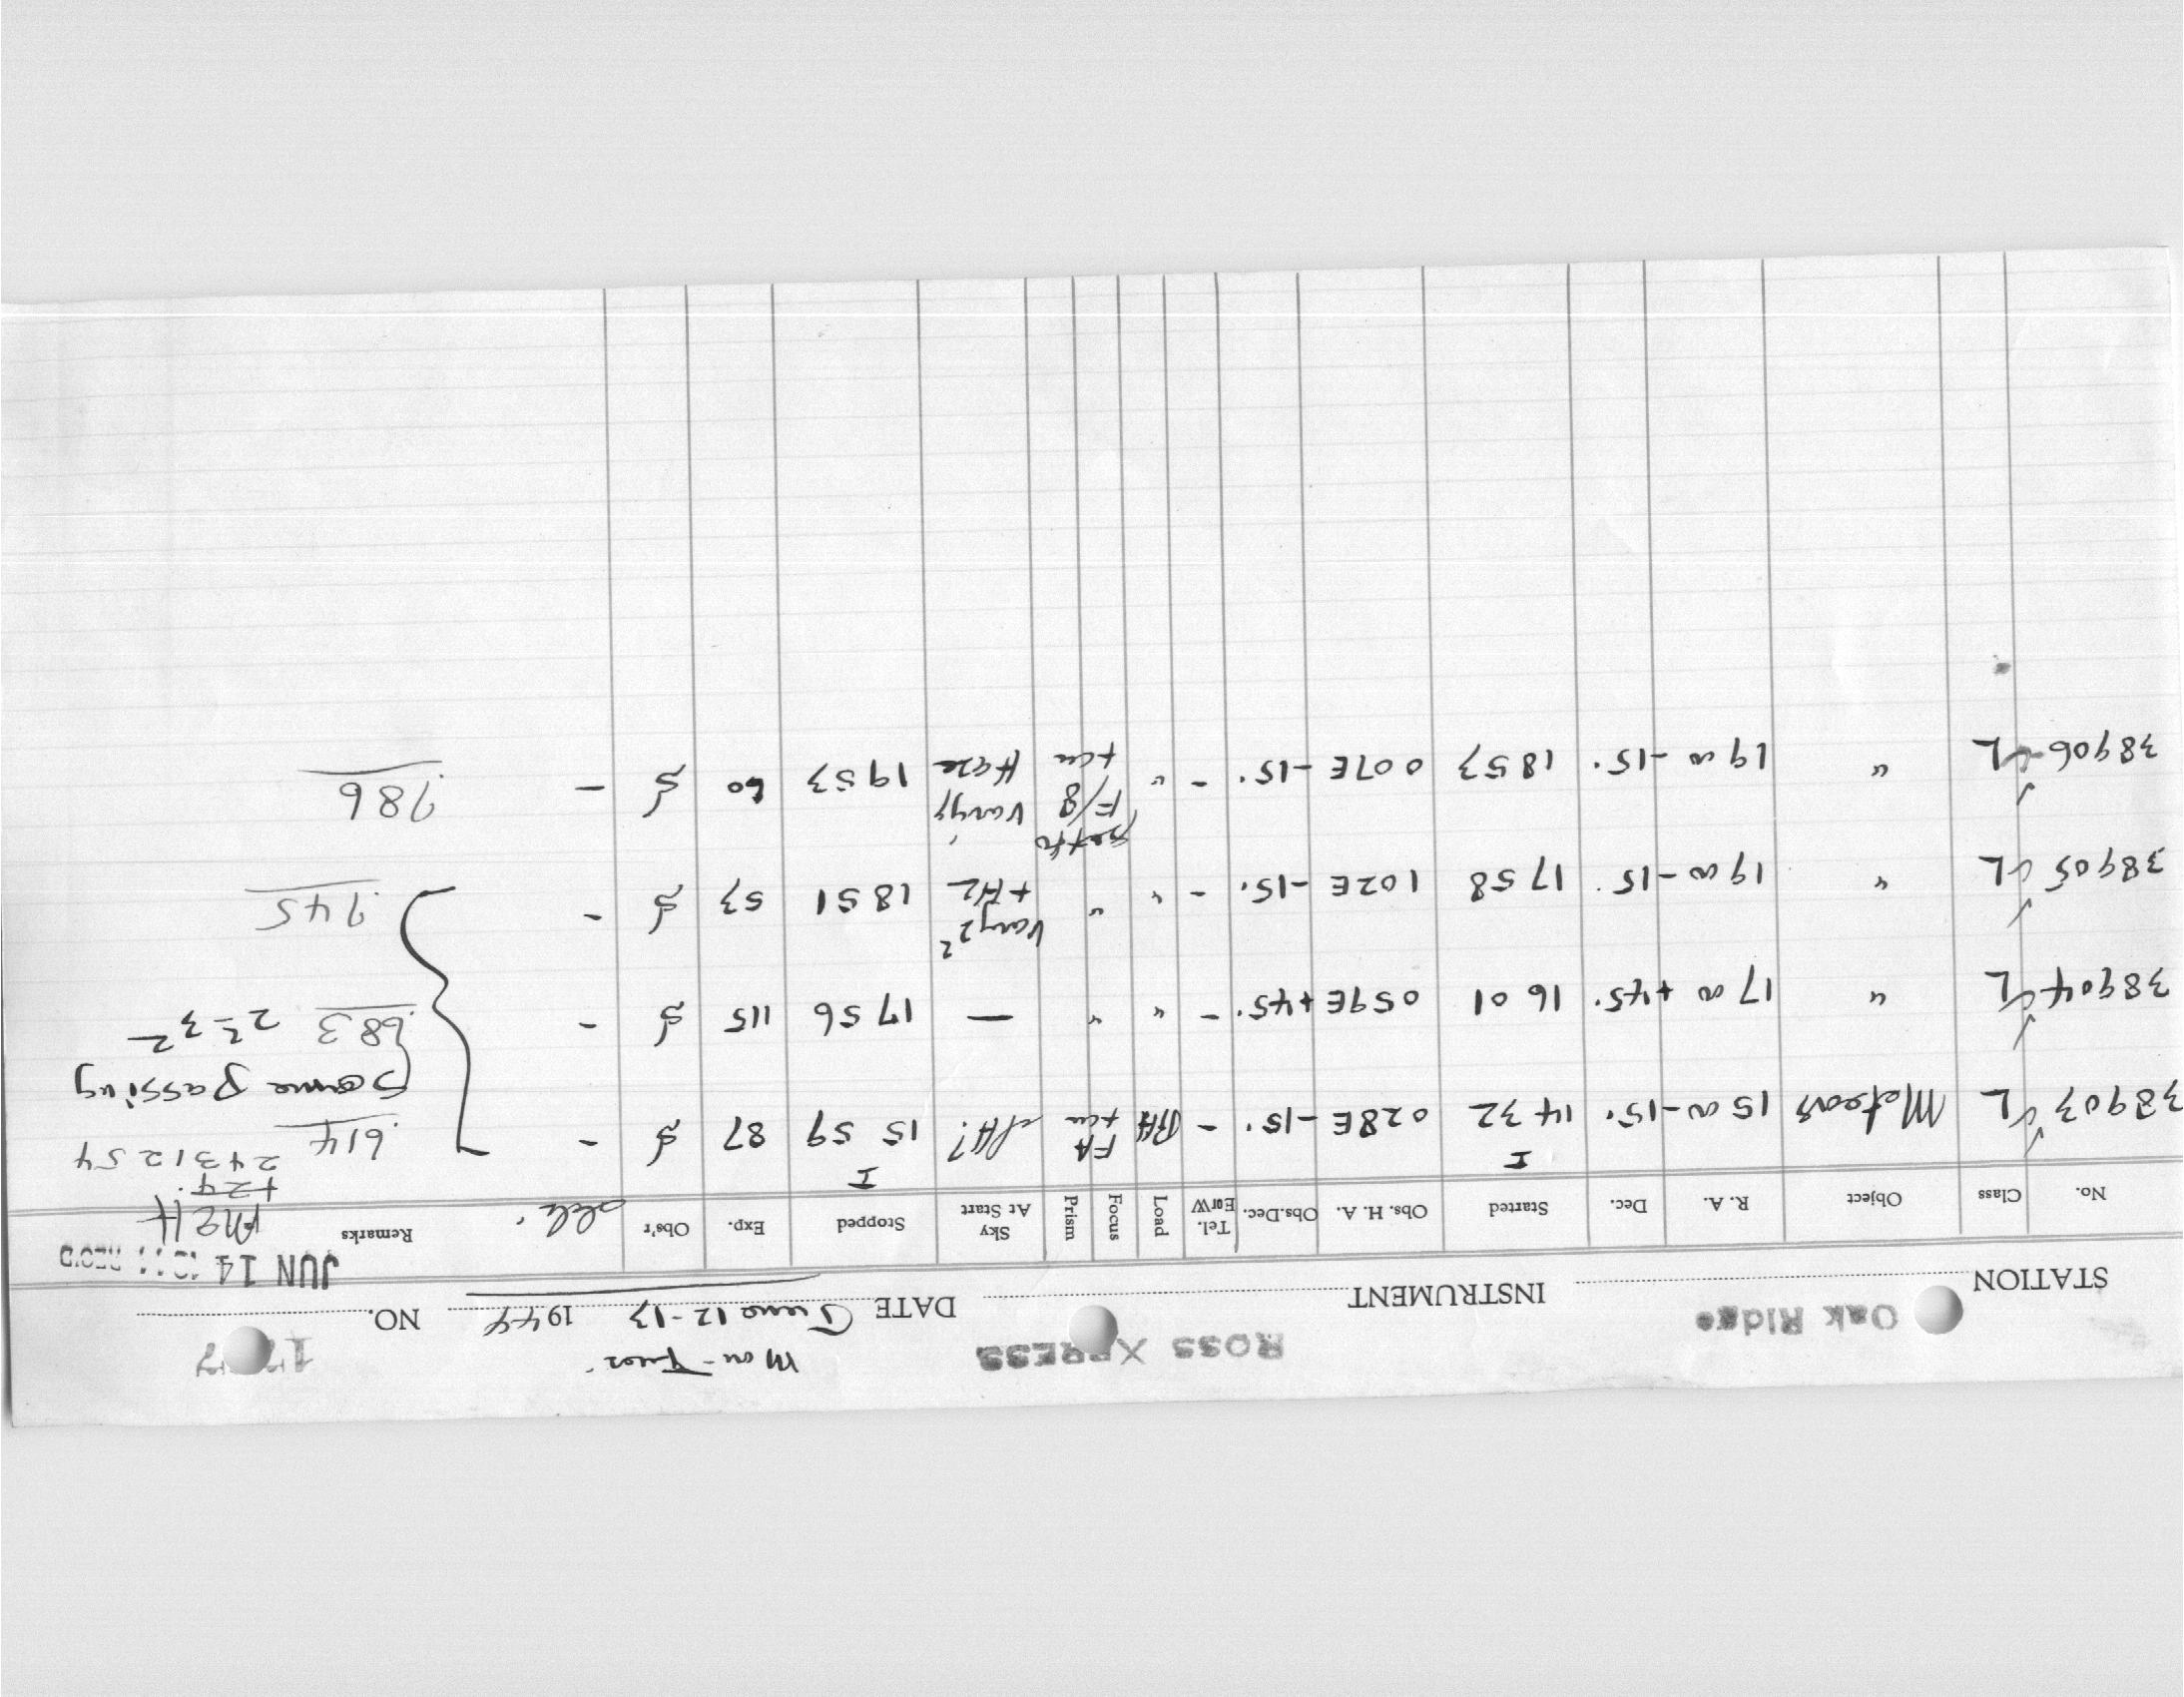 Oak Ridge ROSS XPRESS Mon-Tues. 1
STATION INSTRUMENT DATE June 12-13 1944 NO.
JUN 14 REC'D
No. Class Object R. A. Dec. Started Obs. H. A. Obs.Dec. Tel. E or W Load Focus Prism Sky At Start Stopped Exp. Obs'r Remarks
+24.
2431254
38903 L Meteors 15 00 -15. I 14 32 028E -15. - FA + cu I 15 59 87 - .614
Some passing
38904 L " 17 00 +45. 16 01 059E +45. - " " — 17 56 115 - .683
38905 L " 19 00 -15. 17 58 102E -15. - " " Vary + Hz 18 51 53 - .745
38906 L " 19 00 -15. 18 53 007E -15. - " set to F/8 + cu Varyg Haze 19 53 60 - .786